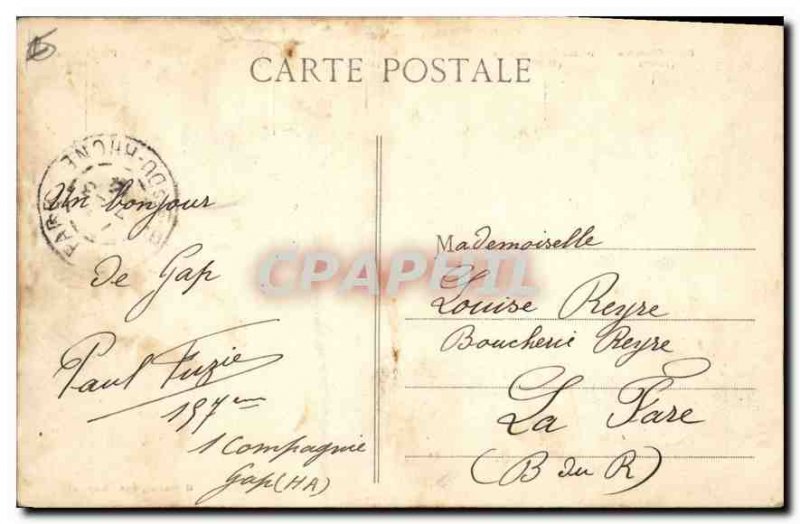 CARTE POSTALE
Un bonjour
de Gap
Paul Fuzie
157ème
1 Compagnie
Gap (HA)
Mademoiselle
Louise Reyre
Boucherie Reyre
La Fare
(B du R)
DU-RHONE
FARE
CPAPHIL